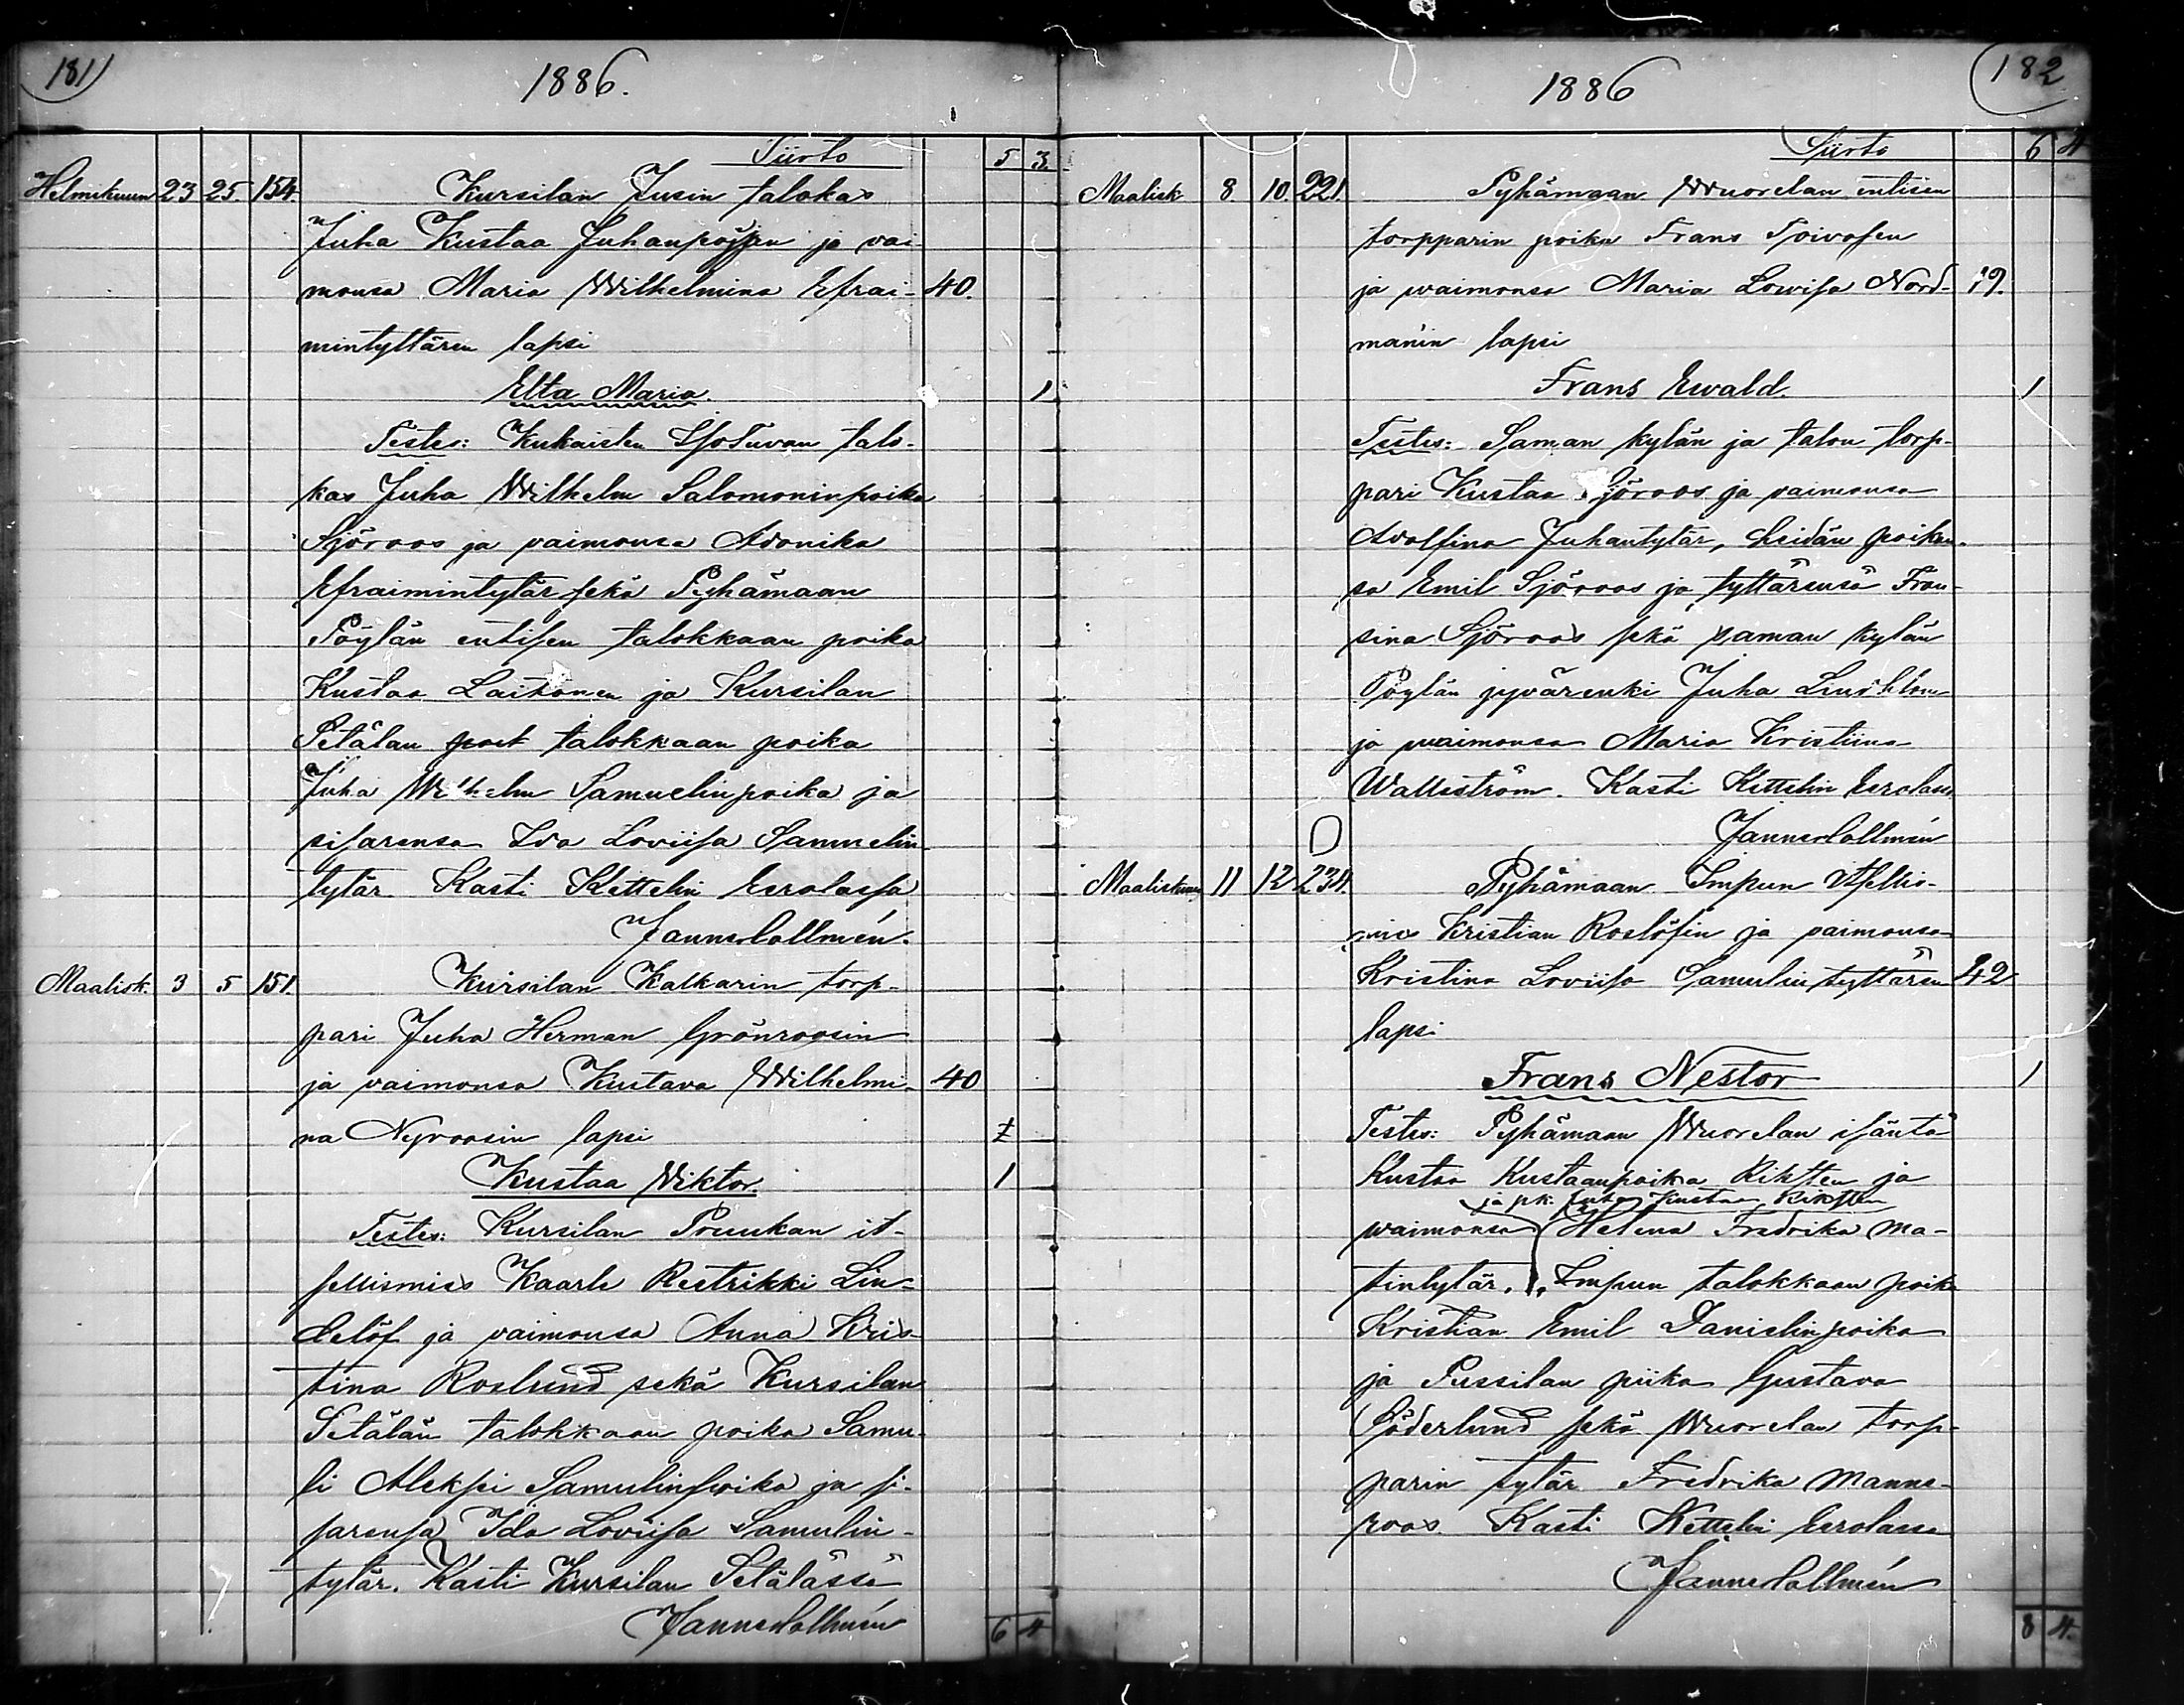 181)
1886.
Siirto 5 3.
Helmikuun 23 25. 154. Kursilan Jusin talokas
Juha Kustaa Juhanpojan ja vai
monsa Maria Wilhelmina Efrai- 40.
mintyttären lapsi
Elta Maria. 1
Testes: Kukaisten IsoTuvan talo-
kas Juha Wilhelm Salomoninpoika
Sjöroos ja vaimonsa Adonika
Efraimintytär sekä Pyhämaan
Pöylän entisen talokkaan poika
Kustaa Laitonen ja Kursilan
Setälan talokkaan poika
Juha Wilhelm Samuelinpoika ja
sisarensa Ida Loviisa Samuelin
tytär. Kasti Kettelin Eerolassa
Janne Collmén.
Maalisk. 3 5 151. Kursilan Kalkarin torp-
pari Juha Herman Grönroosin
ja vaimonsa Kustava Wilhelmi- 40
na Nyroosin lapsi
Kustaa Viktor. 1
Testes: Kursilan Pruukan it-
sellismies Kaarle Reetrikki Lin-
delöf ja vaimonsa Anna Kris-
tina Roslund sekä Kursilan
Setälän talokkaan poika Samu-
li Aleksi Samulinpoika ja si-
sarensa Ida Loviisa Samulin-
tytär. Kasti Kursilan Setälässä
Janne Collmén
6 4
182
1886
Siirto 6 4
Maalisk 8. 10. 221. Pyhämaan Wuorelan entisen
torpparin poika Frans Toivosen
ja waimonsa Maria Lowisa Nord- 19.
manin lapsi
Frans Ewald. 1
Testes: Saman kylän ja talon torp-
pari Kustaa Sjöroos ja vaimonsa
Adolfina Juhantytär, heidän poiken-
sa Emil Sjöroos ja tyttärensä Fran-
sina Sjöroos sekä saman kylän
Pöylän jyvärenki Juha Lindblom
ja waimonsa Maria Kristiina
Wallström. Kasti Kettelin Eerolassa
Janne Collmén
Maaliskuun 11 12 234. Pyhämaan Impun itsellis-
mies Kristian Roslöfin ja vaimonsa
Kristina Loviisa Samulintyttären 42
lapsi
Frans Nestor 1
Testes: Pyhämaan Wuorelan isäntä
Kustaa Kustaanpoika Rikstén ja
ja pk. Juha Kustaa Rikstén
waimonsa Helena Fredrika Ma-
tintytär, Impun talokkaan poika
Kristian Emil Danielinpoika
ja Pussilan piika Gustava
Söderlund sekä Wuorelan torp-
parin tytär Fredrika Manne-
roos. Kasti Kettelin Eerolassa
Janne Collmén
8 4.